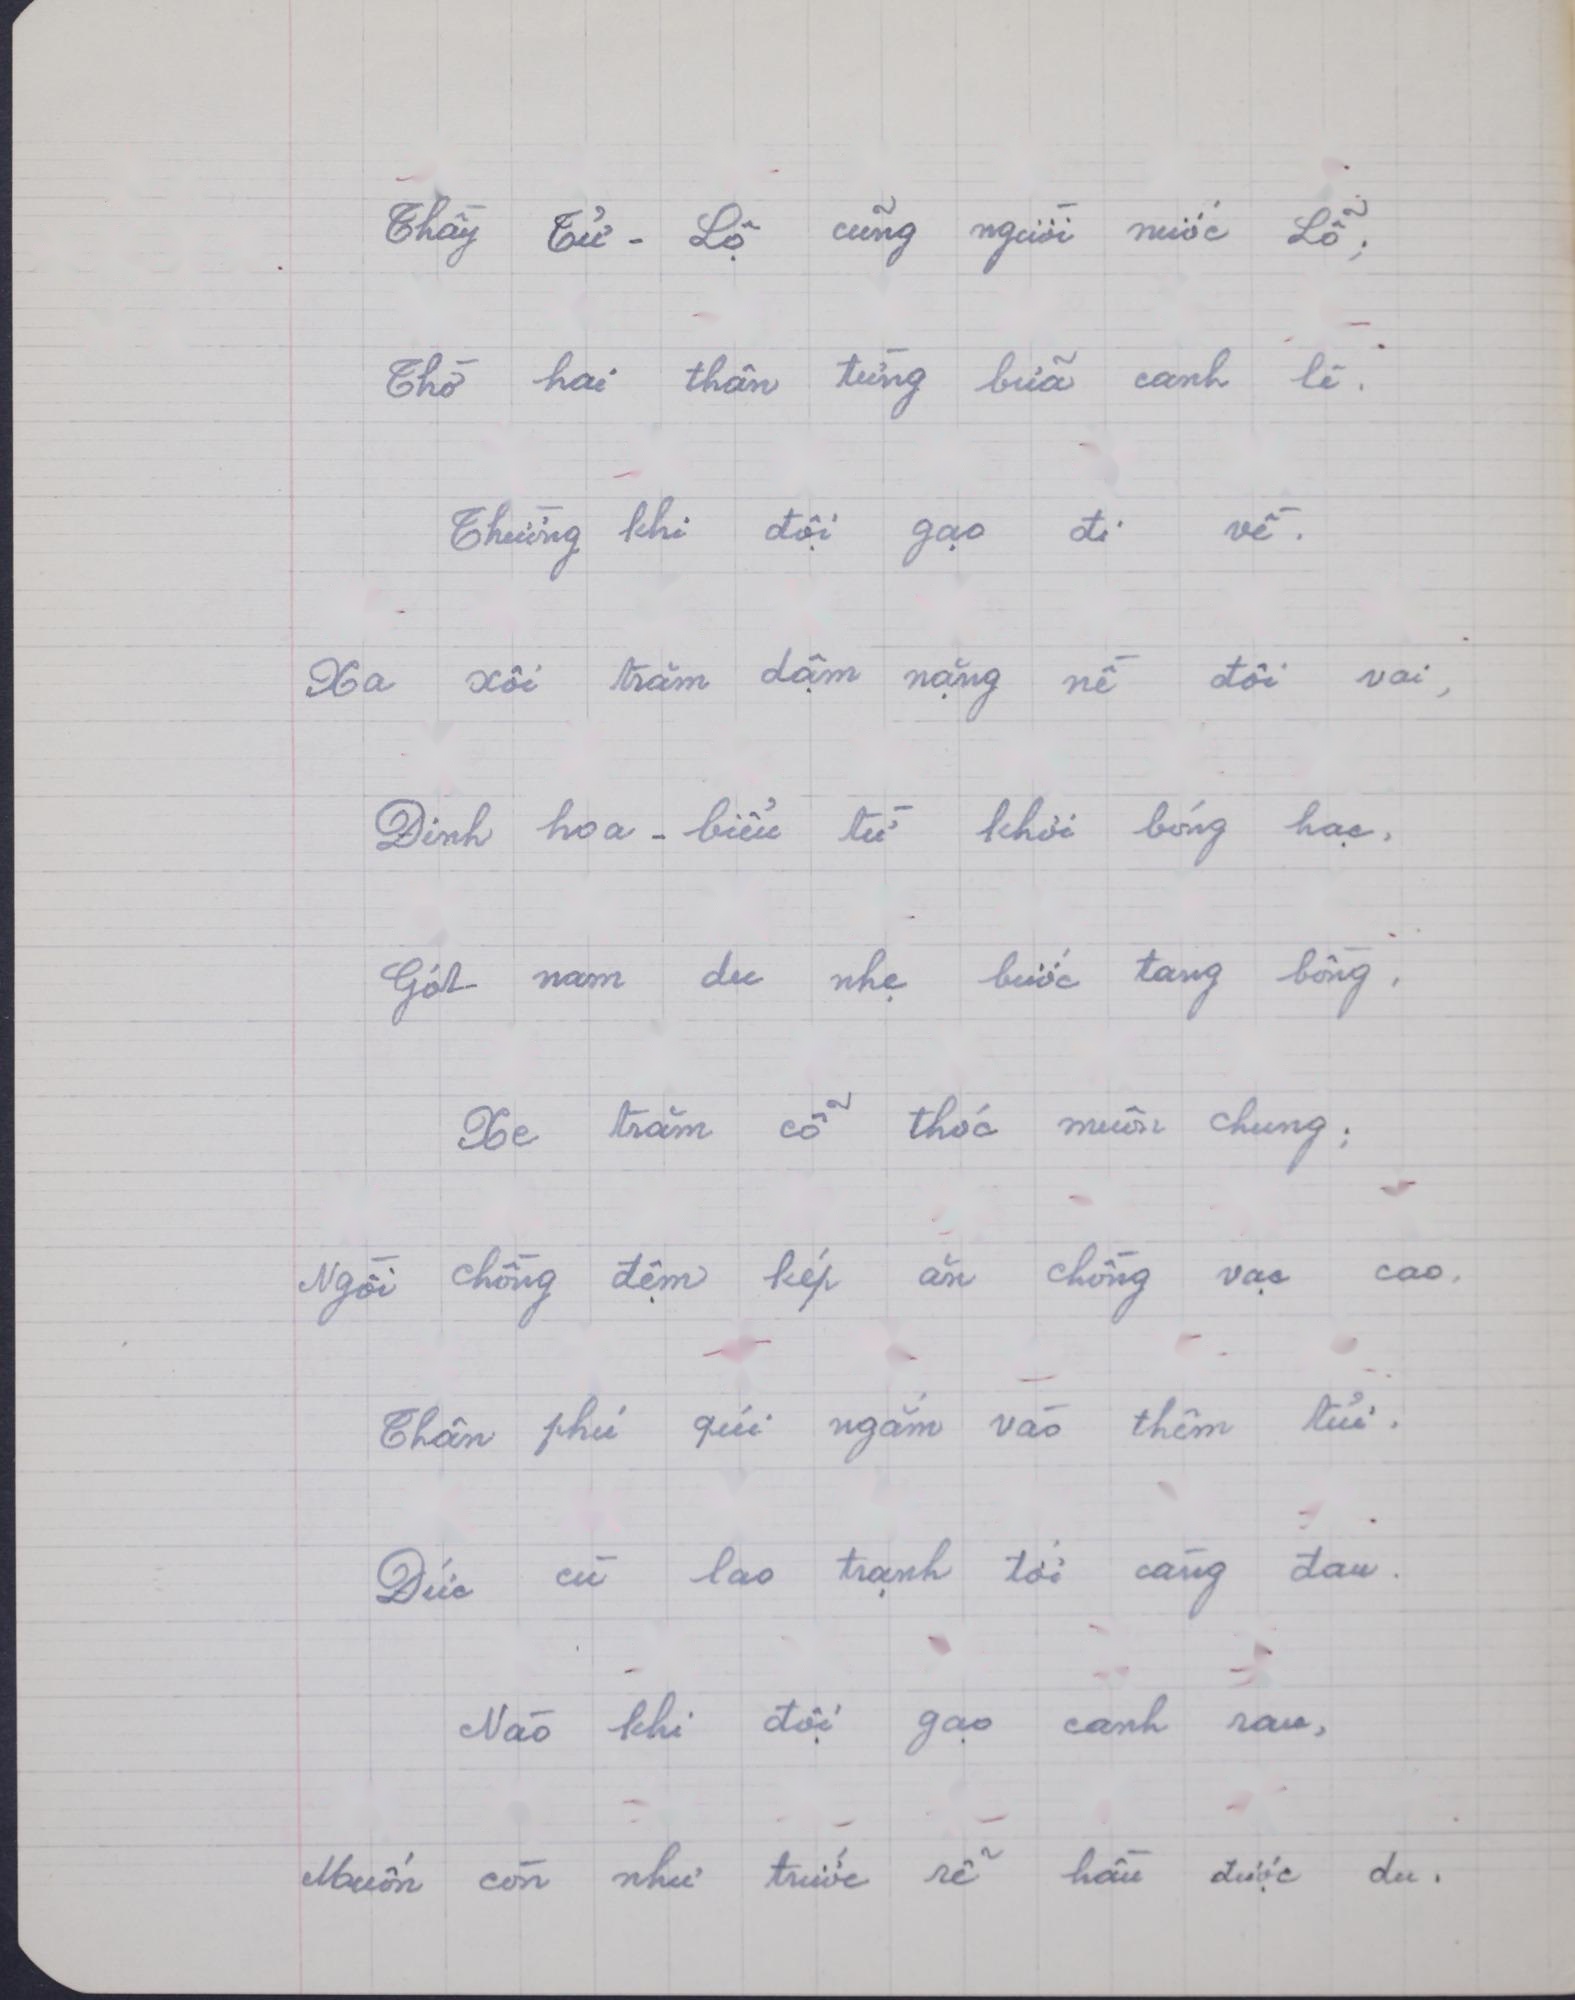 Thầy Tử - Lộ cũng người nước Lỗ;
Thờ hai thân từng bữa canh lê.
Thường khi đội gạo đi về.
Xa xôi trăm dậm nặng nề đôi vai,
Đinh hoa - biểu từ khơi bóng hạc,
Gót nam du nhẹ bước tang bồng,
Xe trăm cỗ thóc muôn chung;
Ngồi chồng đệm kép ăn chồng vạc cao.
Thân phú quí ngắm vào thêm tủi.
Đức cù lao trạnh tới càng đau.
Nào khi đội gạo canh rau,
Muốn còn như trước rễ hầu được du.